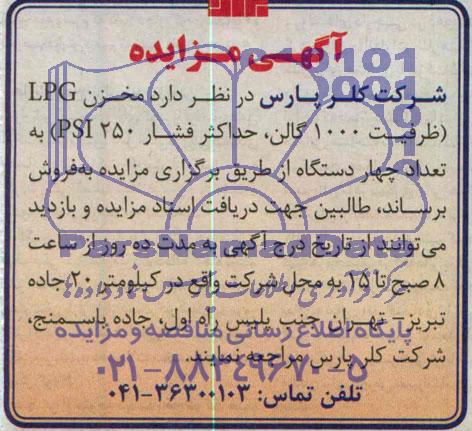 آگهی مزایده
شرکت کلر پارس در نظر دارد مخزن LPG
(ظرفیت ۱۰۰۰ گالن، حداکثر فشار ۲۵۰ PSI) به
تعداد چهار دستگاه از طریق برگزاری مزایده به‌فروش
برساند، طالبین جهت دریافت اسناد مزایده و بازدید
می‌توانند از تاریخ درج آگهی به مدت ده روز از ساعت
۸ صبح تا ۱۵ به محل شرکت واقع در کیلومتر ۲۰ جاده
تبریز- تهران جنب پلیس راه اول، جاده باسمنج،
شرکت کلر پارس مراجعه نمایند.
تلفن تماس: ۳۶۳۰۰۱۰۳-۰۴۱
ParsNamadData
پایگاه اطلاع رسانی مناقصه و مزایده
۰۲۱-۸۸۳۴۹۶۷۰-۵